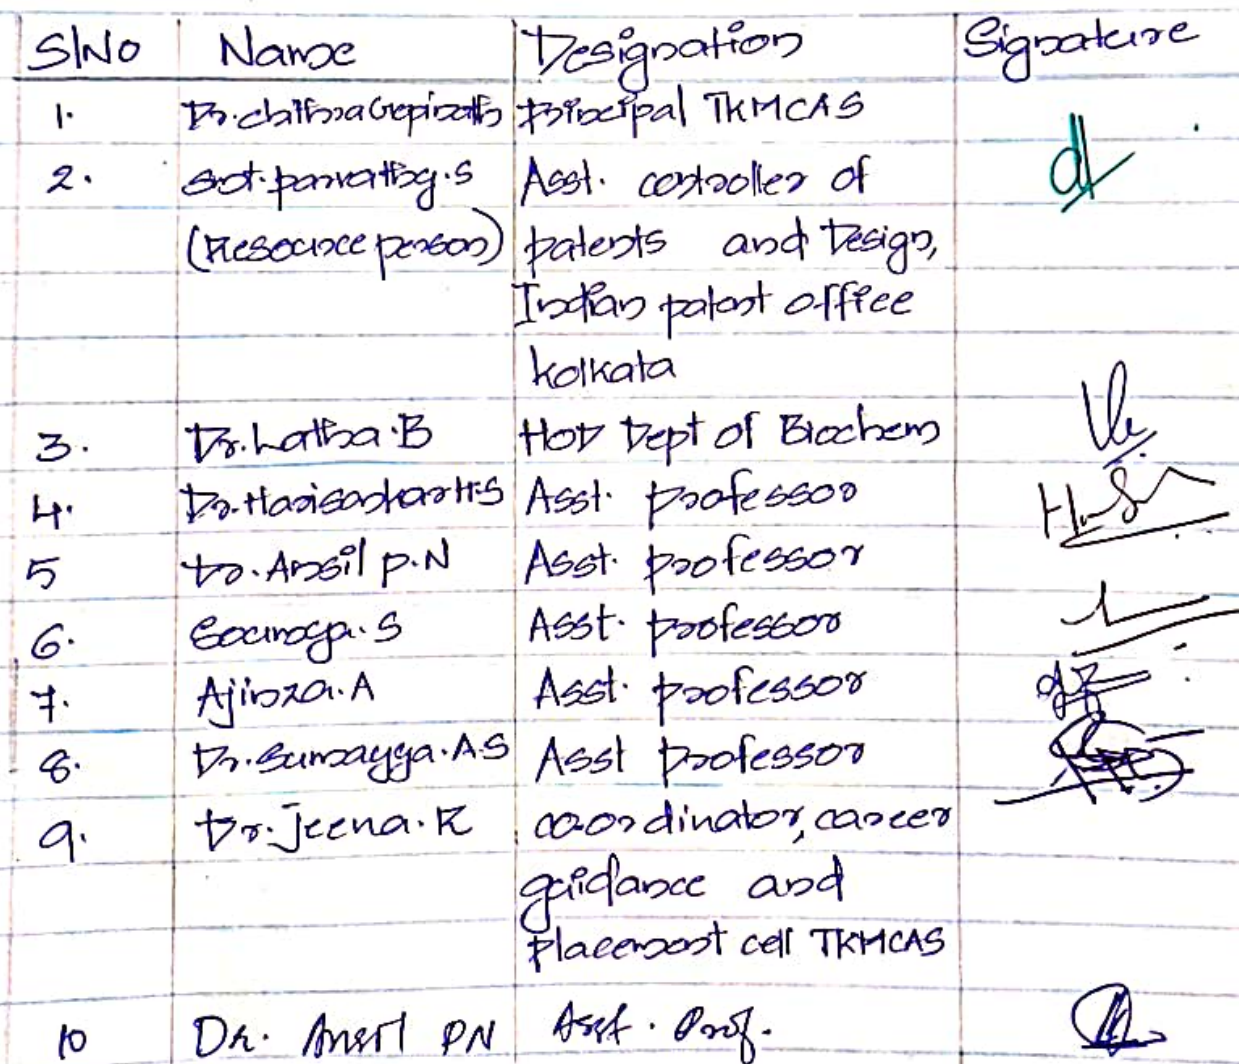 SlNo Name Designation Signature
1. Dr. chithra Gopinath principal TKMCAS
2. smt. parvathy.S Asst. controller of
(Resource person) patents and Design,
Indian patent office
kolkata
3. Dr. Latha.B HOD Dept of Biochem
4. Dr. Harisankar H.S Asst. professor
5 Dr. Ansil p.N Asst. professor
6. Souraga.S Asst. professor
7. Ajinza.A Asst. professor
8. Dr. Sumayya.A.S Asst professor
9. Dr. Jeena.R co-ordinator, career
guidance and
placement cell TKMCAS
10 Dr. Ansil PN Asst. Prof.